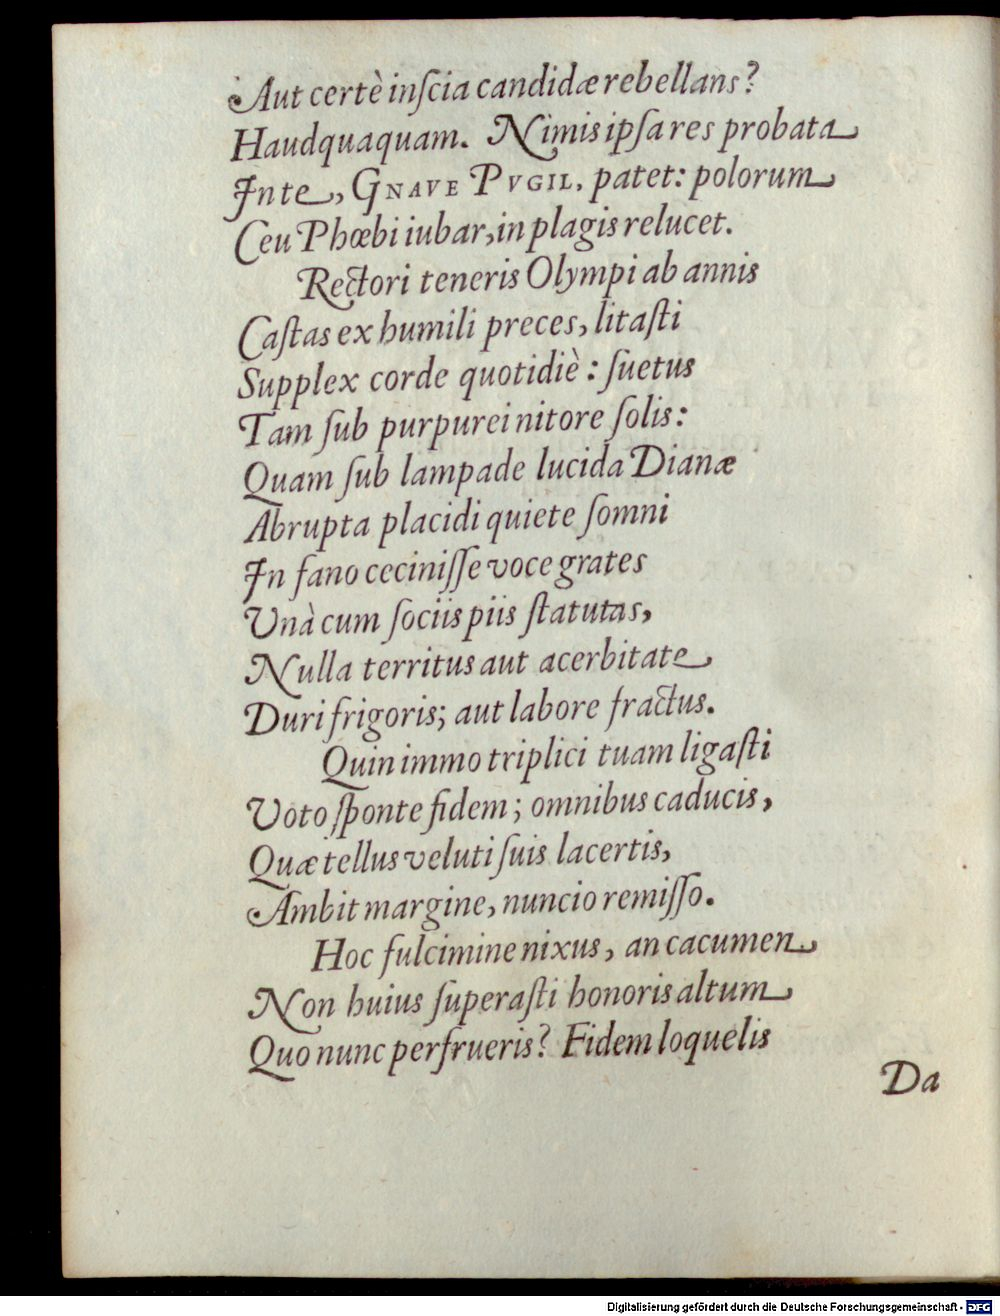 Aut certè inſcia candidæ rebellans?
Haudquaquam. Nimis ipſa res probata
In te, GNAVE PVGIL, patet: polorum
Ceu Phœbi iubar, in plagis relucet.
Rectori teneris Olympi ab annis
Caſtas ex humili preces, litaſti
Supplex corde quotidiè: ſuetus
Tam ſub purpurei nitore ſolis:
Quam ſub lampade lucida Dianæ
Abrupta placidi quiete ſomni
In fano ceciniſſe voce grates
Vnà cum ſociis piis ſtatutas,
Nulla territus aut acerbitate
Duri frigoris; aut labore fractus.
Quin immo triplici tuam ligaſti
Voto ſponte fidem; omnibus caducis,
Quæ tellus veluti ſuis lacertis,
Ambit margine, nuncio remiſſo.
Hoc fulcimine nixus, an cacumen
Non huius ſuperaſti honoris altum
Quo nunc perfrueris? Fidem loquelis
Da
Digitalisierung gefördert durch die Deutsche Forschungsgemeinschaft - DFG